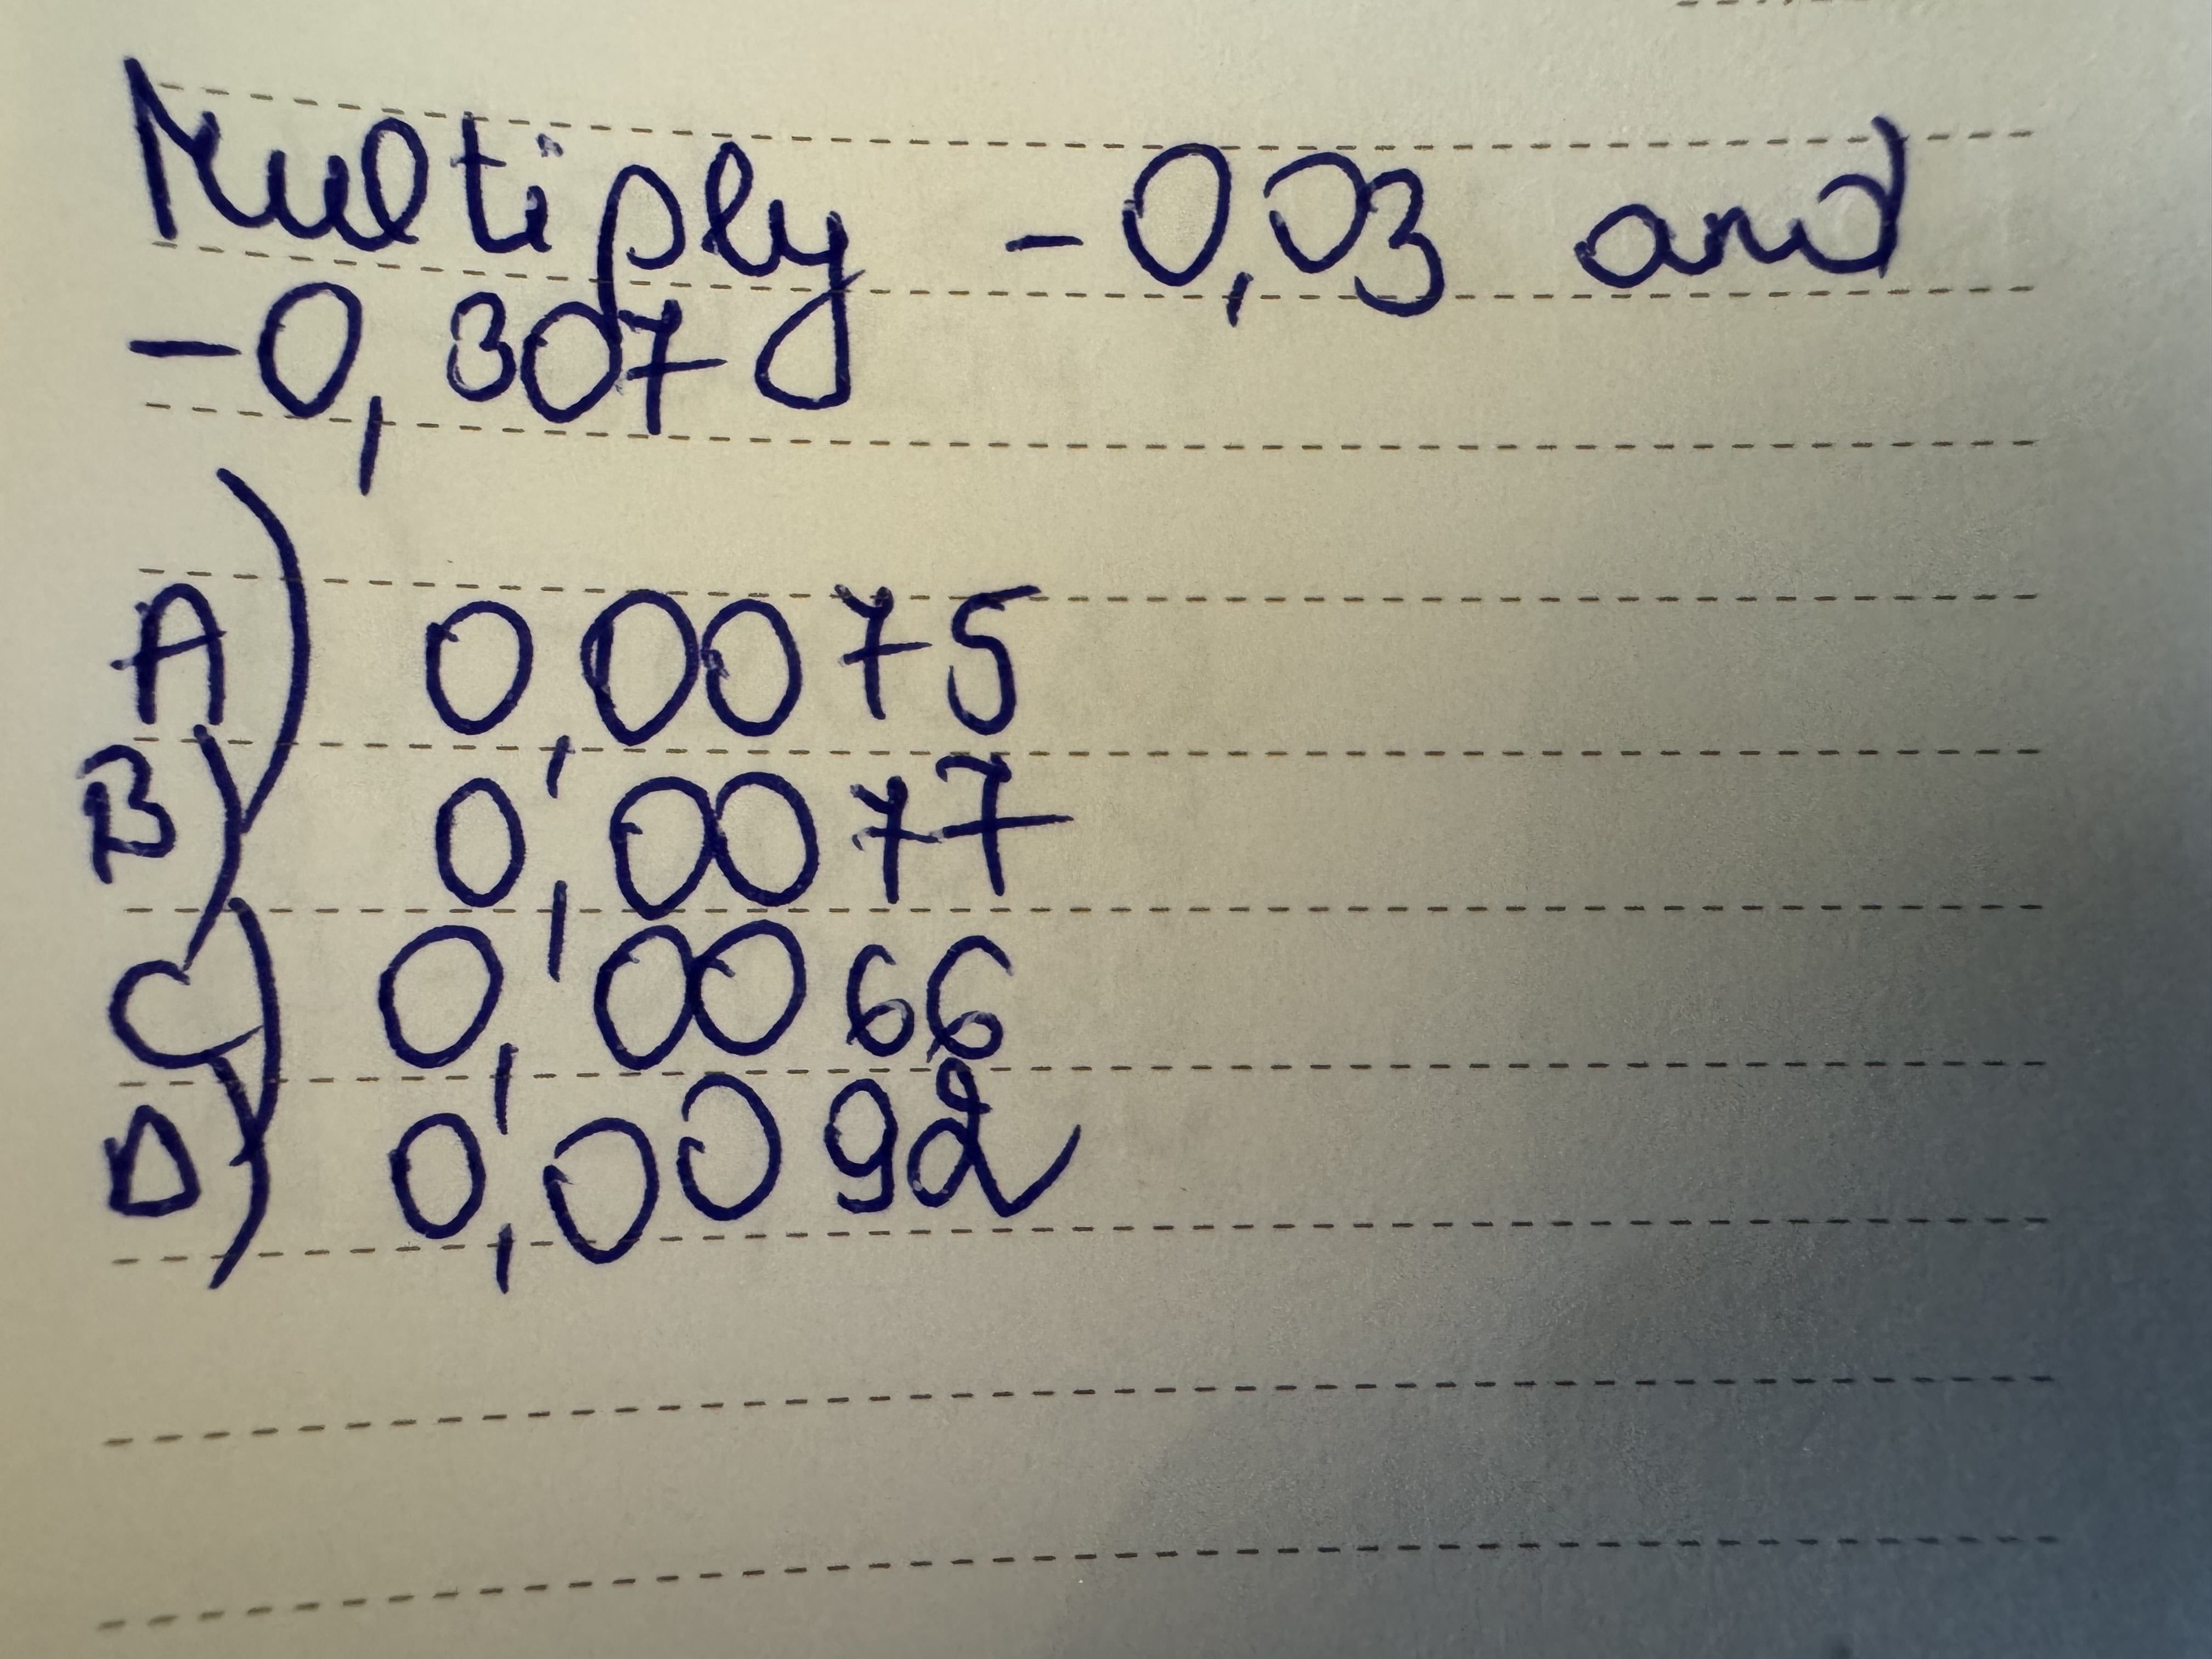 Multiply -0,03 and
-0,307
A) 0,0075
B) 0,0077
C) 0,0066
D) 0,0092